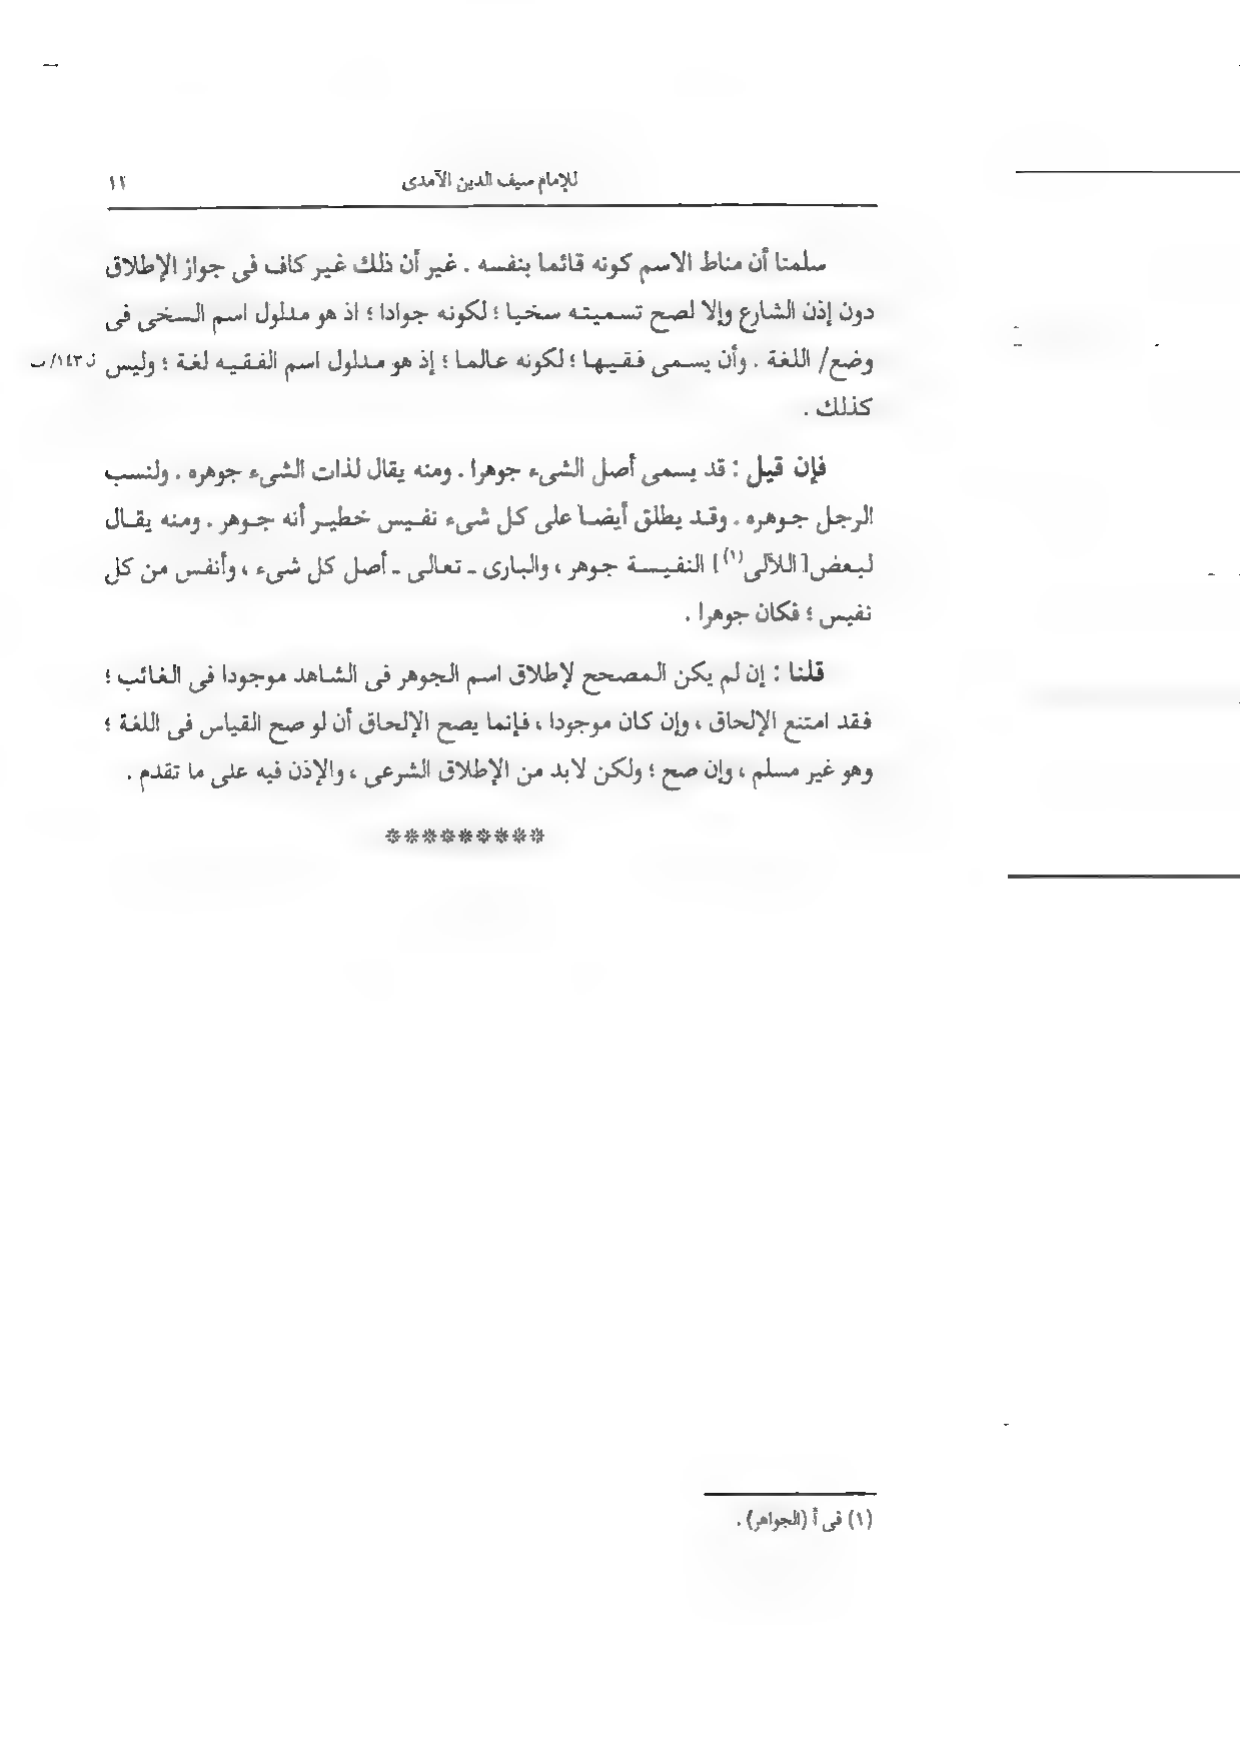 للإمام سيف الدين الآمدى ١١
سلمنا أن مناط الاسم كونه قائما بنفسه . غير أن ذلك غير كاف فى جواز الإطلاق
دون إذن الشارع وإلا لصح تسميته سخيا ؛ لكونه جوادا ؛ اذ هو مدلول اسم السخى فى
وضع/ اللغة . وأن يسمى فقيها ؛ لكونه عالما ؛ إذ هو مدلول اسم الفقيه لغة ؛ وليس ل ١٤٣/ب
كذلك .
فإن قيل : قد يسمى أصل الشىء جوهرا . ومنه يقال لذات الشىء جوهره . ولنسب
الرجل جوهره . وقد يطلق أيضا على كل شىء نفيس خطير أنه جوهر . ومنه يقال
لبعض [اللآلى(١)] النفيسة جوهر ، والبارى ـ تعالى ـ أصل كل شىء ، وأنفس من كل
نفيس ؛ فكان جوهرا .
قلنا : إن لم يكن المصحح لإطلاق اسم الجوهر فى الشاهد موجودا فى الغائب ؛
فقد امتنع الإلحاق ، وإن كان موجودا ، فإنما يصح الإلحاق أن لو صح القياس فى اللغة ؛
وهو غير مسلم ، وإن صح ؛ ولكن لابد من الإطلاق الشرعى ، والإذن فيه على ما تقدم .
*********
(١) فى أ (الجواهر) .